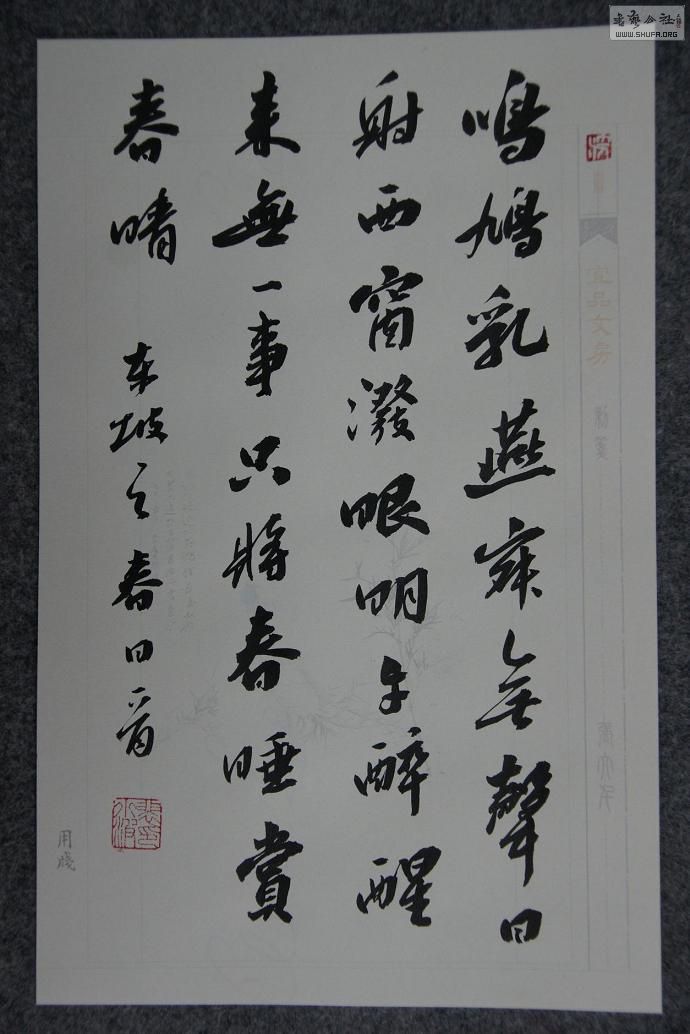 書藝公社
WWW.SHUFA.ORG
宜品文房
鳴鳩乳燕寂無聲日
射西窗潑眼明午醉醒
来無一事只將春睡賞
春晴 东坡之春日一首
用牋